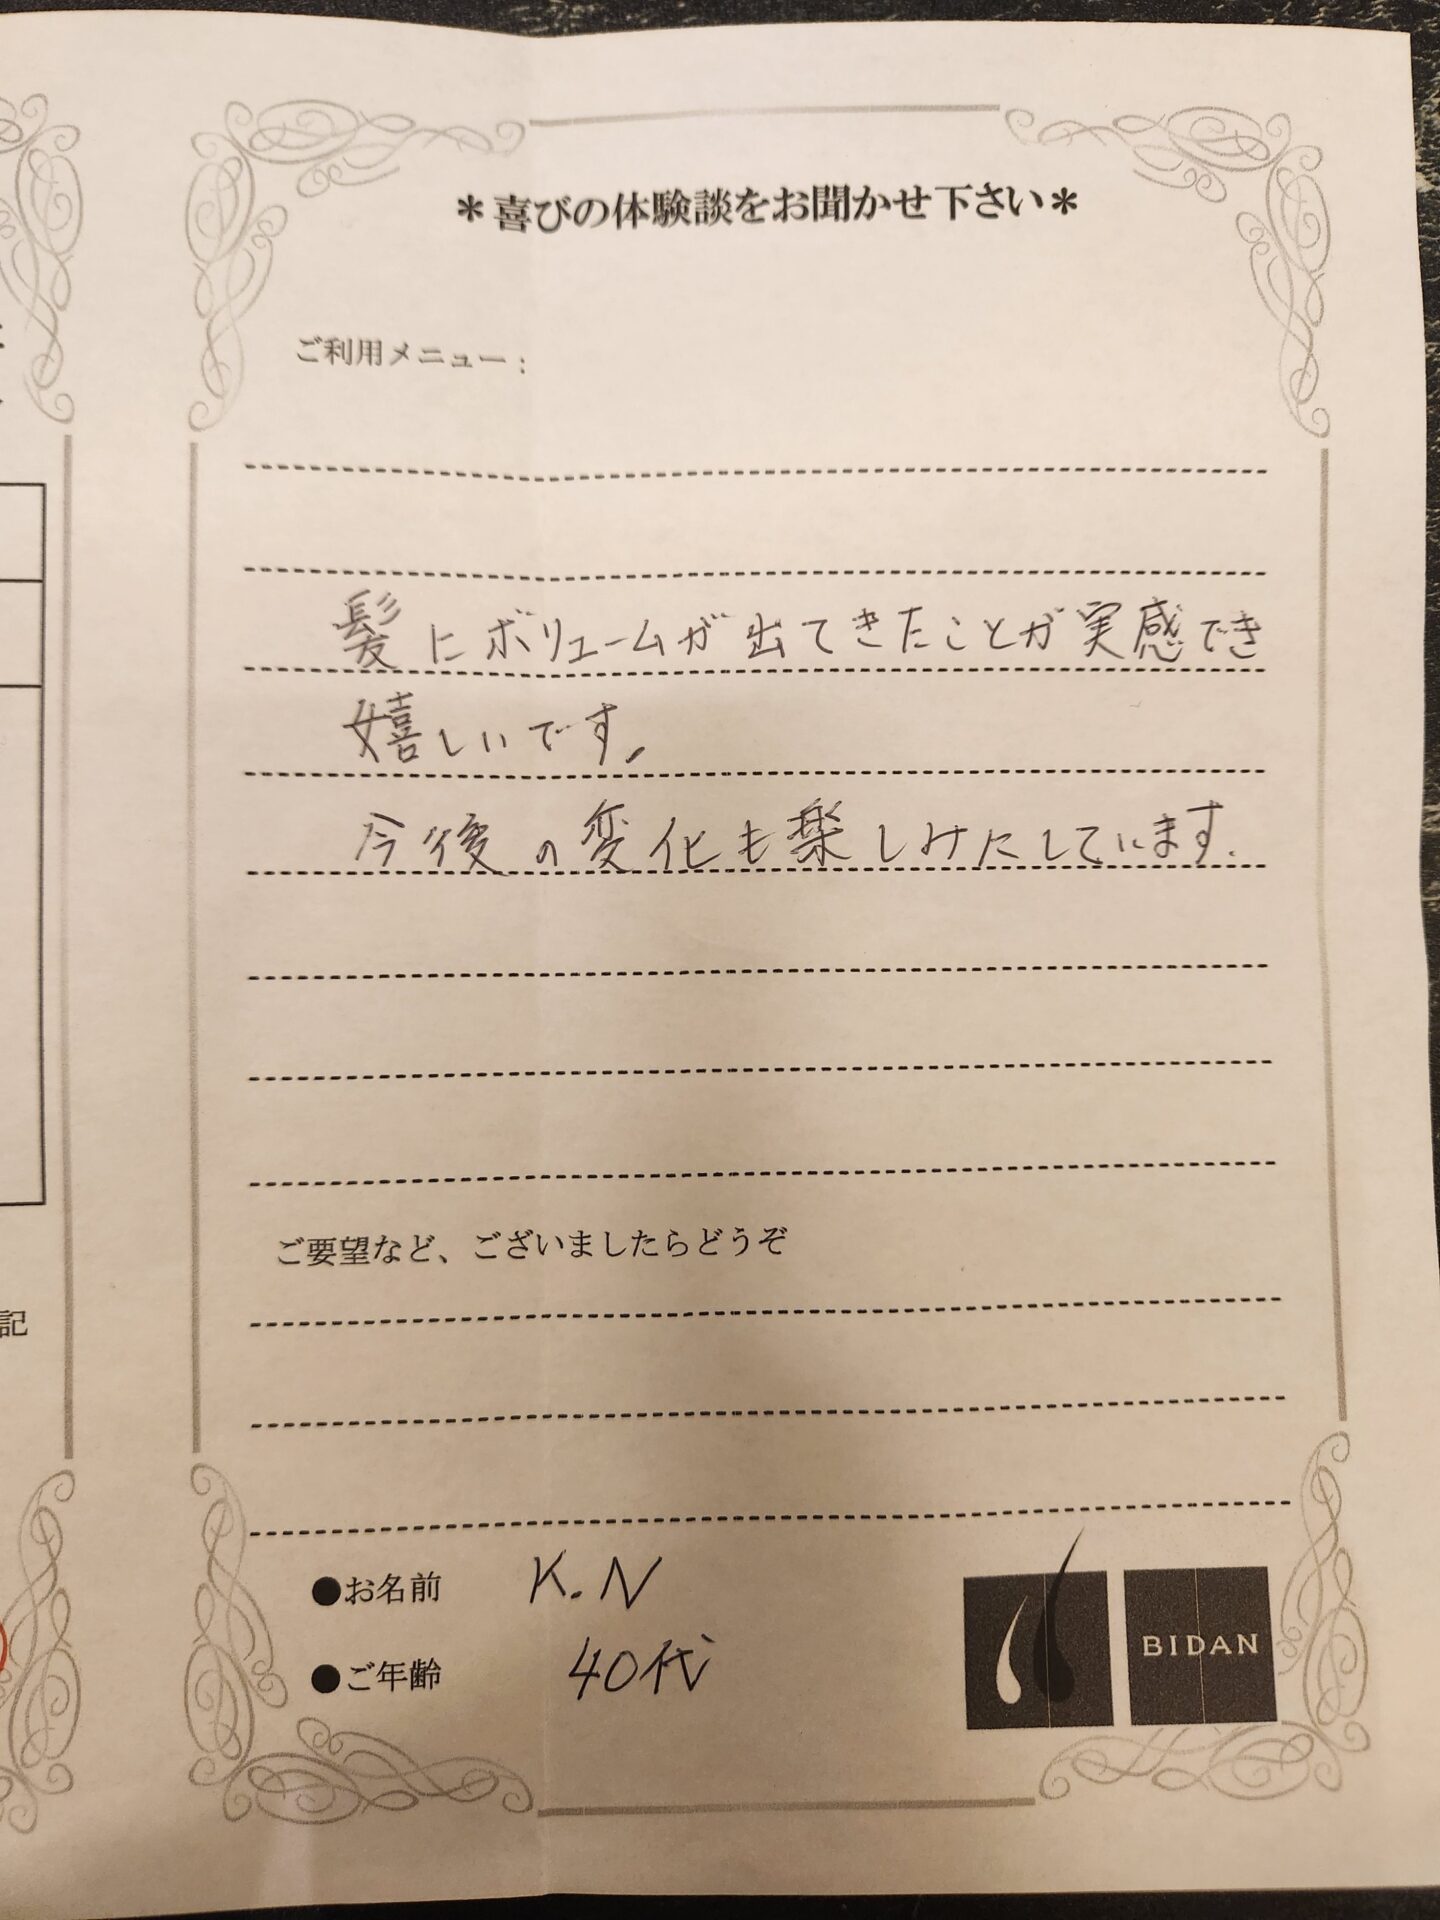 ＊喜びの体験談をお聞かせ下さい＊
ご利用メニュー：
髪にボリュームが出てきたことが実感でき
嬉しいです。
今後の変化も楽しみにしています.
ご要望など、ございましたらどうぞ
記
●お名前 K.N
●ご年齢 40代
BIDAN